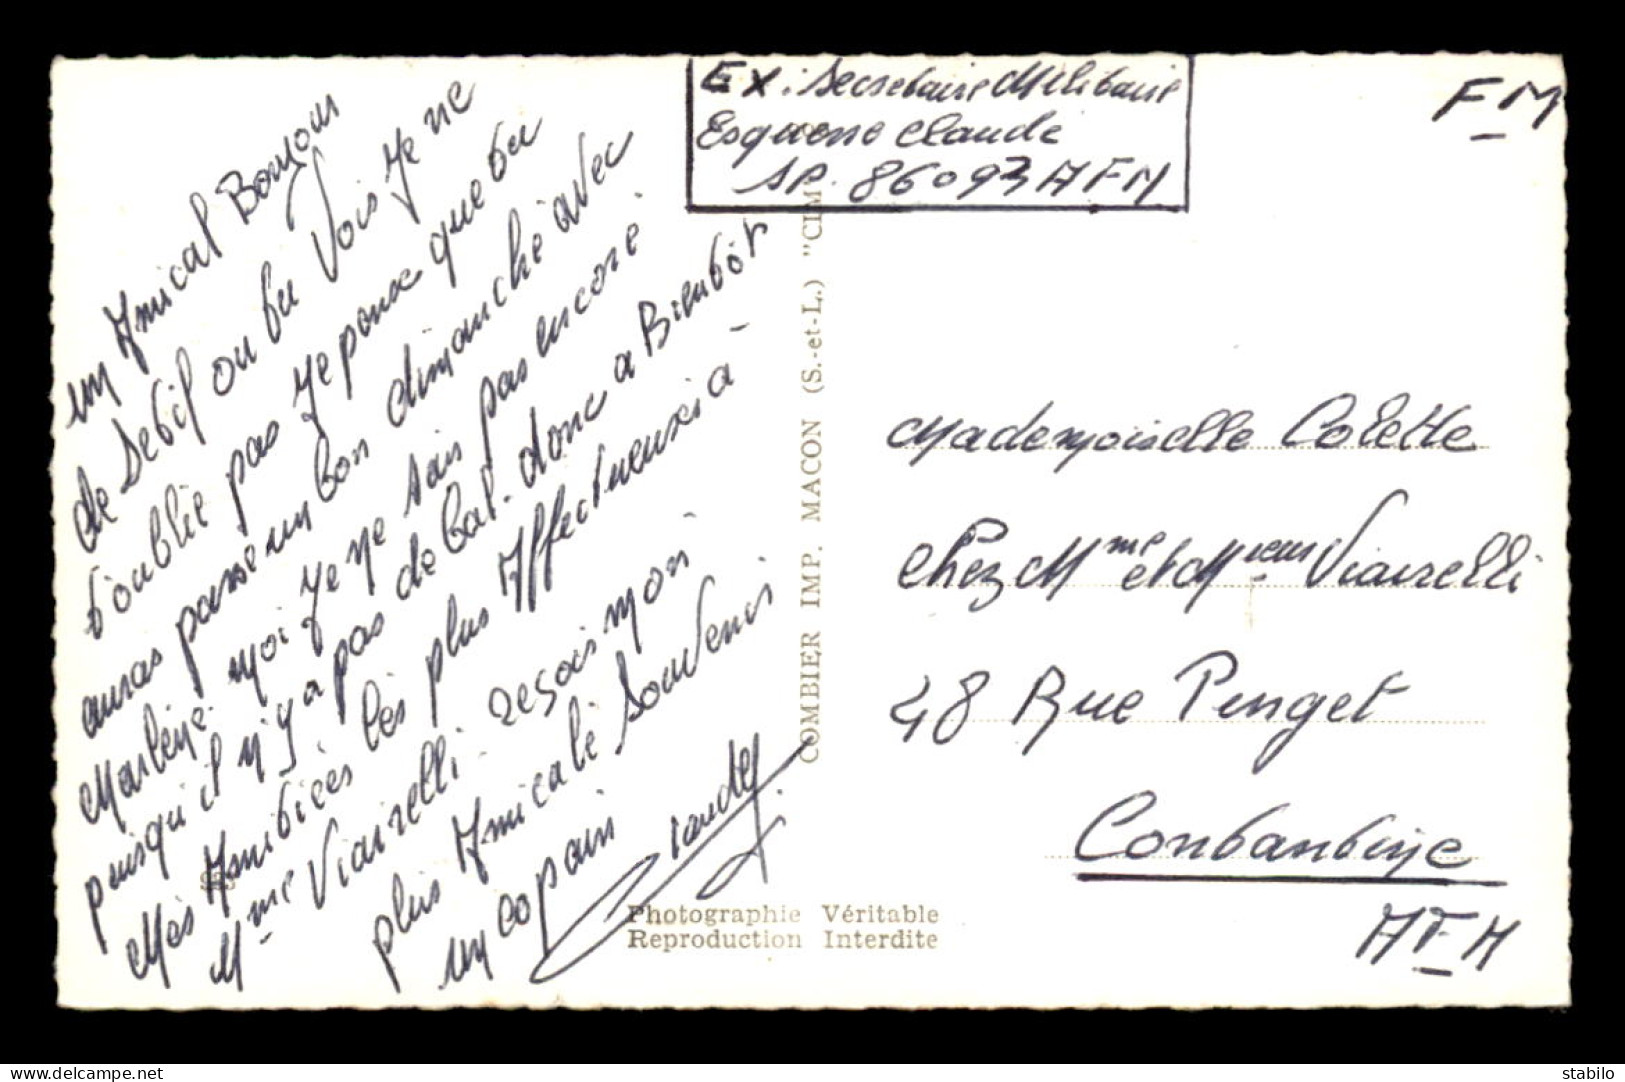 un Amical Bonjour
de Setif ou tu Vois je ne
t'oublie pas je panse que tu
auras passe un bon dimanche avec
Marlene. moi je ne sais pas encore
puisqu'il n'y a pas de bal. donc a Bientôt
Mes Amitiées les plus Affectueuse a
Mme Viairelli. resois mon
plus Amicale Souvenir
un copain
Claude
EX. Secretaire Militaire
Claude
SP. 86093 AFN
FM
COMBIER IMP. MACON (S.-et-L.) "CIM"
Mademoiselle Colette
Chez Mme et Msieur Viairelli
48 Rue Pinget
Constantine
AFN
Photographie Véritable
Reproduction Interdite
stabilo
https://www.delcampe.net